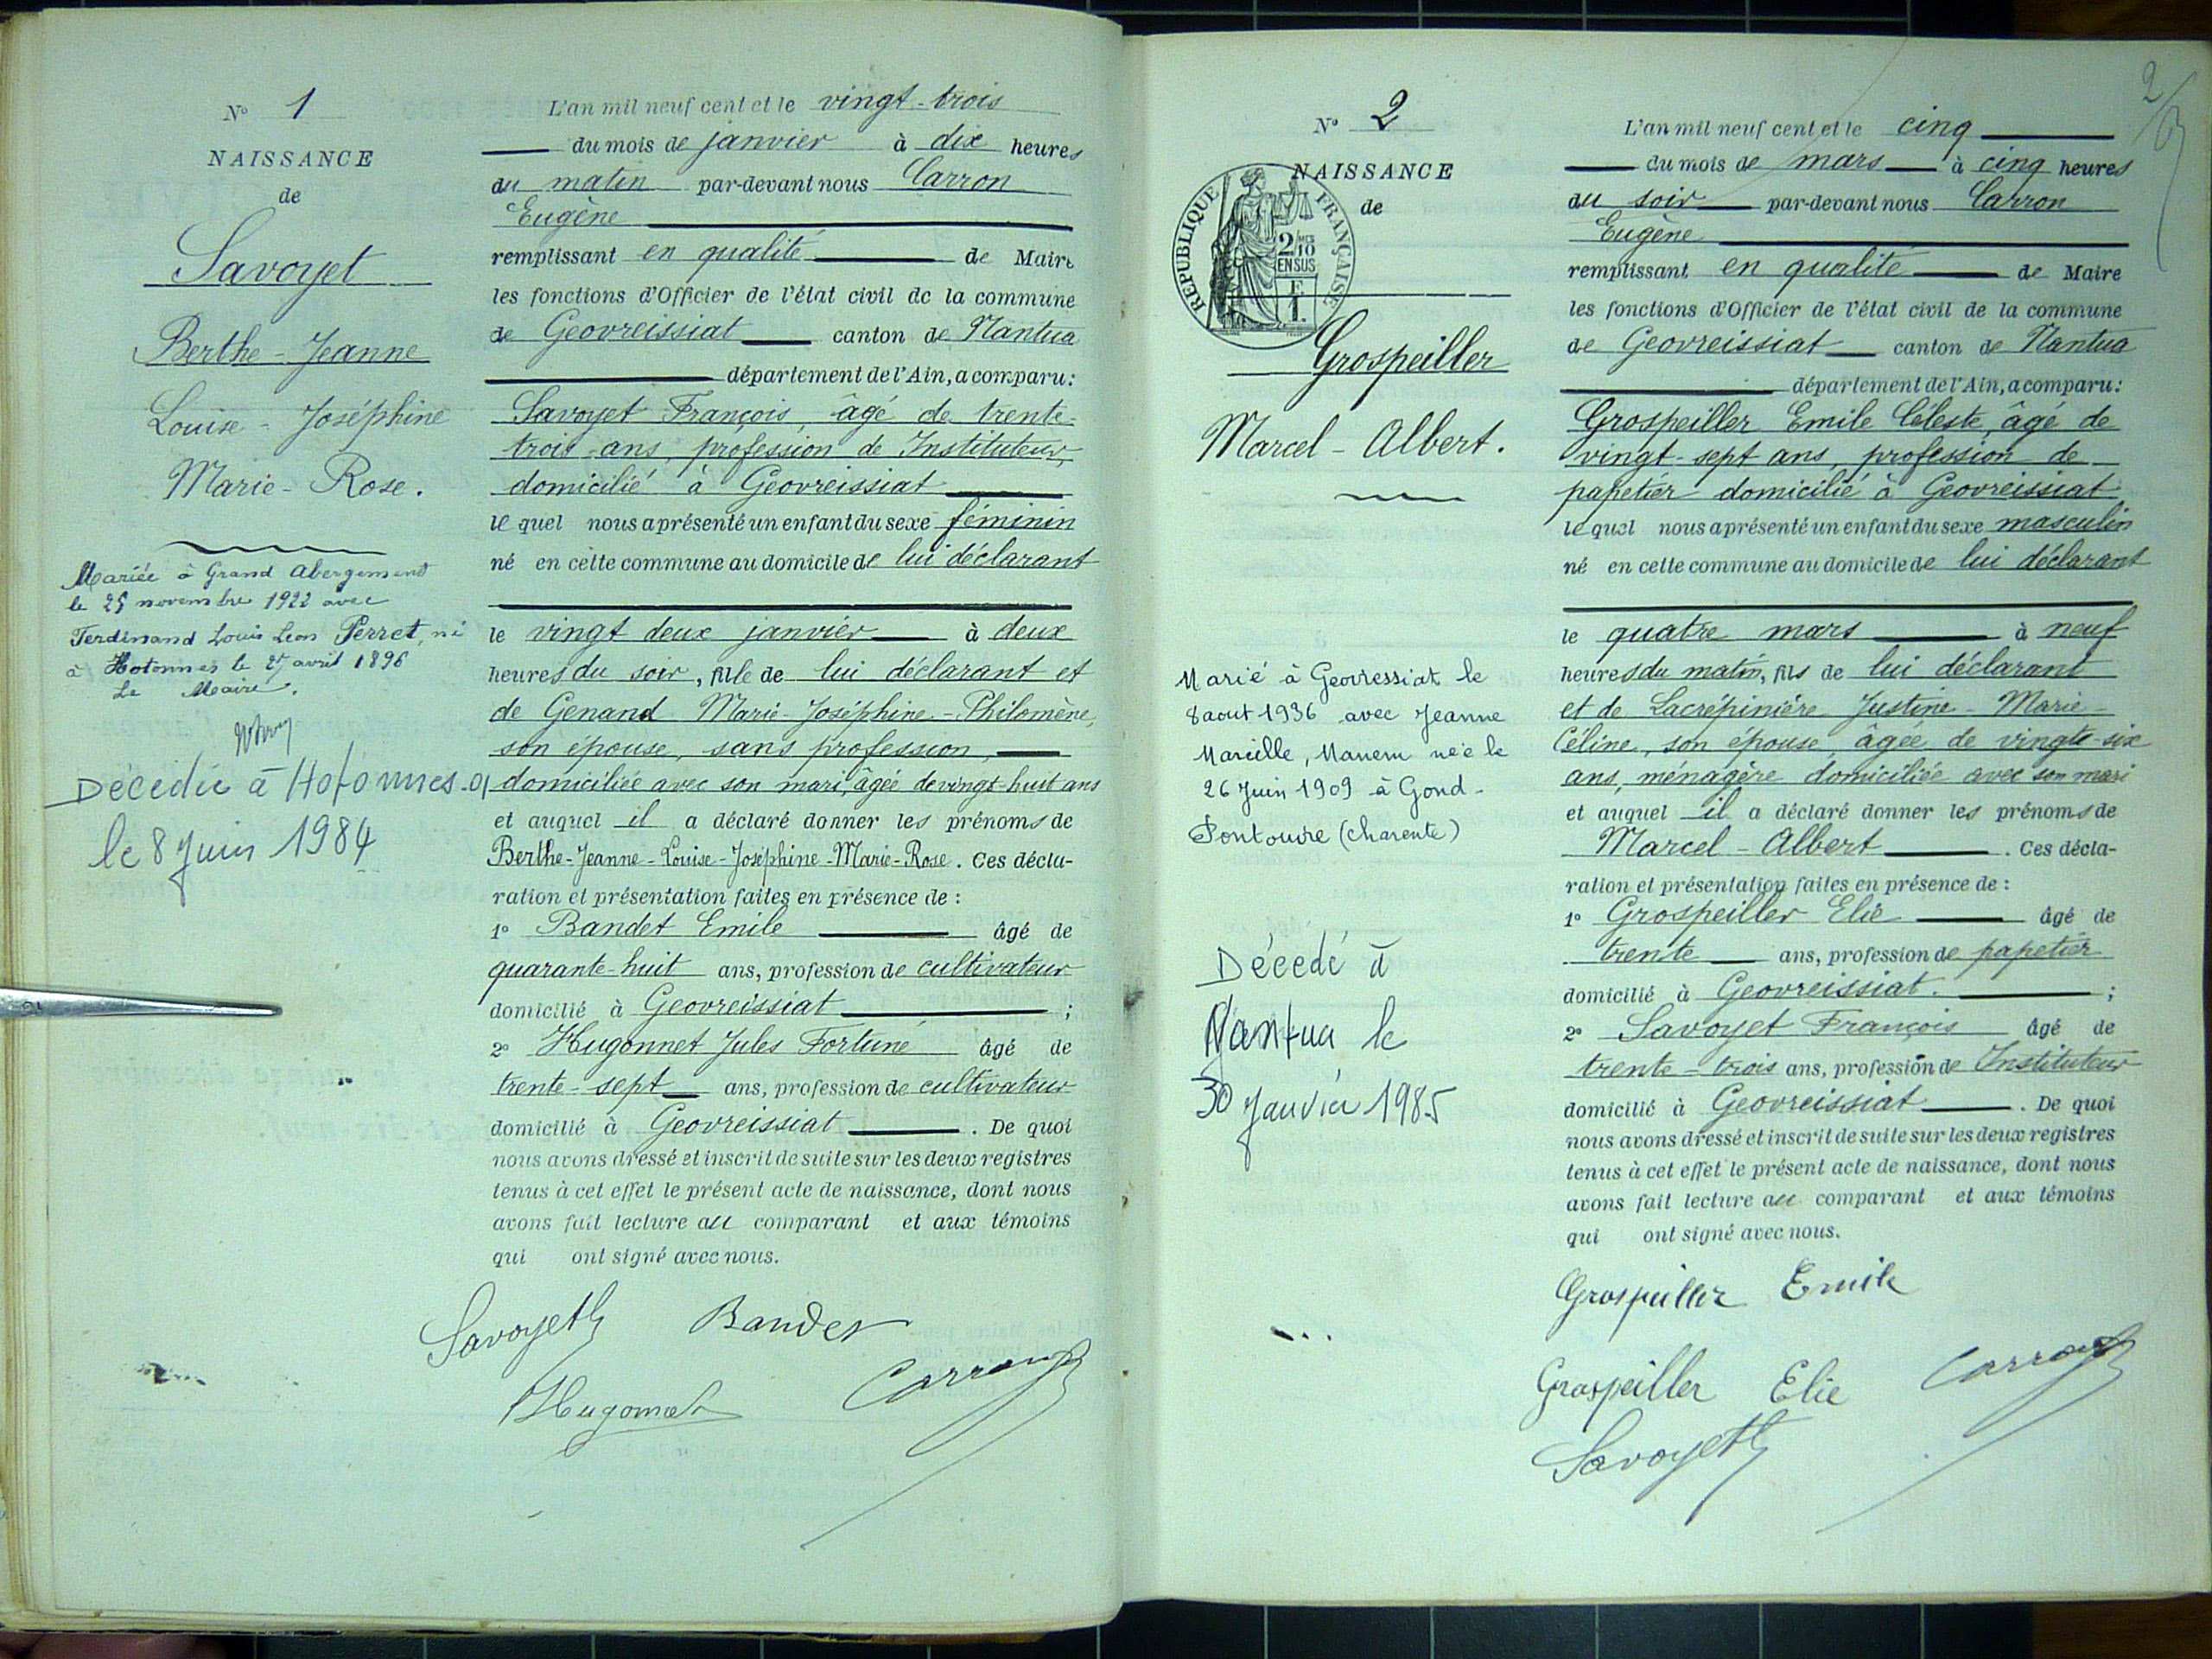 N° 1
NAISSANCE
de
Savoyet
Berthe - Jeanne
Louise - Joséphine
Marie - Rose.
Mariée à Grand Abergement
le 25 novembre 1922 avec
Ferdinand Louis Léon Perret, né
à Hotonnes le 27 avril 1896
Le Maire.
Décédée à Hotonnes
le 8 Juin 1984
L'an mil neuf cent et le vingt-trois
du mois de janvier à dix heures
du matin par-devant nous Carron
Eugène
remplissant en qualité de Maire
les fonctions d'Officier de l'état civil de la commune
de Geovreissiat canton de Nantua
département de l'Ain, a comparu :
Savoyet François, âgé de trente-
trois ans, profession de Instituteur,
domicilié à Geovreissiat
le quel nous a présenté un enfant du sexe féminin
né en cette commune au domicile de lui déclarant
le vingt deux janvier à deux
heures du soir, fille de lui déclarant et
de Genand Marie-Joséphine-Philomène,
son épouse, sans profession,
domiciliée avec son mari, âgée de vingt-huit ans
et auquel il a déclaré donner les prénoms de
Berthe-Jeanne-Louise-Joséphine-Marie-Rose. Ces décla-
ration et présentation faites en présence de :
1° Bandet Emile âgé de
quarante-huit ans, profession de cultivateur
domicilié à Geovreissiat ;
2° Hugonnet Jules Fortuné âgé de
trente-sept ans, profession de cultivateur
domicilié à Geovreissiat . De quoi
nous avons dressé et inscrit de suite sur les deux registres
tenus à cet effet le présent acte de naissance, dont nous
avons fait lecture au comparant et aux témoins
qui ont signé avec nous.
Savoyet Bandet
Hugonnet Carron
2
N° 2
NAISSANCE
de
REPUBLIQUE FRANÇAISE
2/10
EN SUS
F
1
Grospeiller
Marcel - Albert.
Marié à Geovressiat le
8 aout 1936 avec Jeanne
Marcelle, Manem née le
26 Juin 1909 à Gond-
Pontouvre (Charente)
Décédé à
Nantua le
30 Janvier 1985
L'an mil neuf cent et le cinq
du mois de mars à cinq heures
du soir par-devant nous Carron
Eugène
remplissant en qualité de Maire
les fonctions d'Officier de l'état civil de la commune
de Geovreissiat canton de Nantua
département de l'Ain, a comparu :
Grospeiller Emile Céleste, âgé de
vingt-sept ans, profession de
papetier domicilié à Geovreissiat
le quel nous a présenté un enfant du sexe masculin
né en cette commune au domicile de lui déclarant
le quatre mars à neuf
heures du matin, fils de lui déclarant
et de Lacrépinière Justine-Marie-
Céline, son épouse, âgée de vingt-six
ans, ménagère domiciliée avec son mari
et auquel il a déclaré donner les prénoms de
Marcel-Albert . Ces décla-
ration et présentation faites en présence de :
1° Grospeiller Elie âgé de
trente ans, profession de papetier
domicilié à Geovreissiat. ;
2° Savoyet François âgé de
trente-trois ans, profession de Instituteur
domicilié à Geovreissiat . De quoi
nous avons dressé et inscrit de suite sur les deux registres
tenus à cet effet le présent acte de naissance, dont nous
avons fait lecture au comparant et aux témoins
qui ont signé avec nous.
Grospeiller Emile
Grospeiller Elie Carron
Savoyet